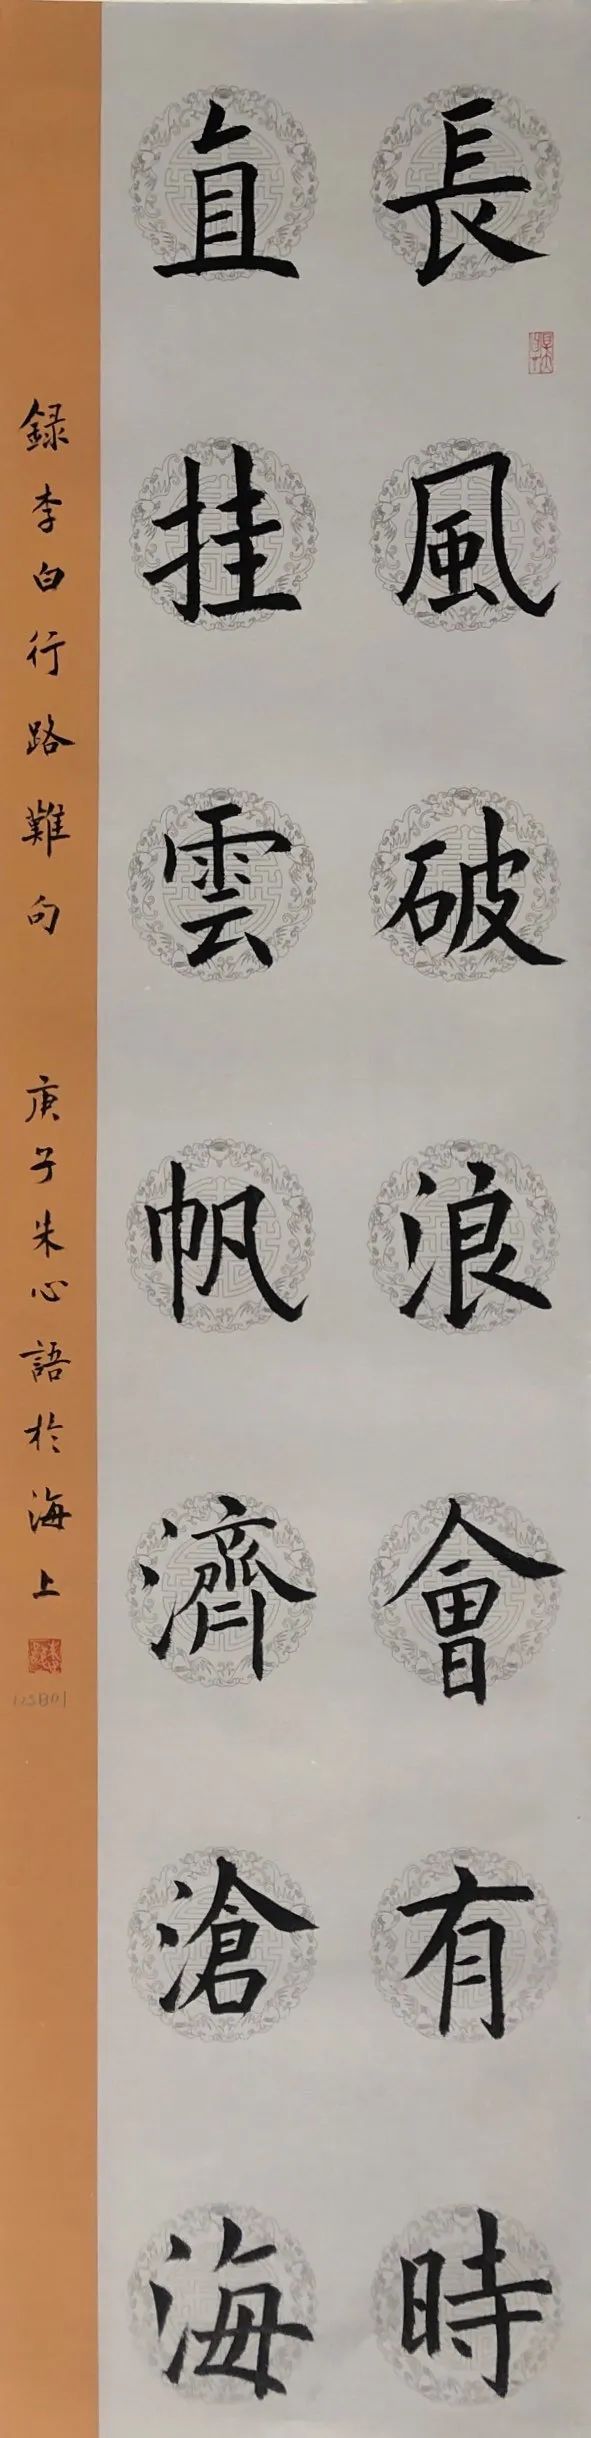 長風破浪會有時
直挂雲帆濟滄海
録李白行路難句 庚子朱心語於海上